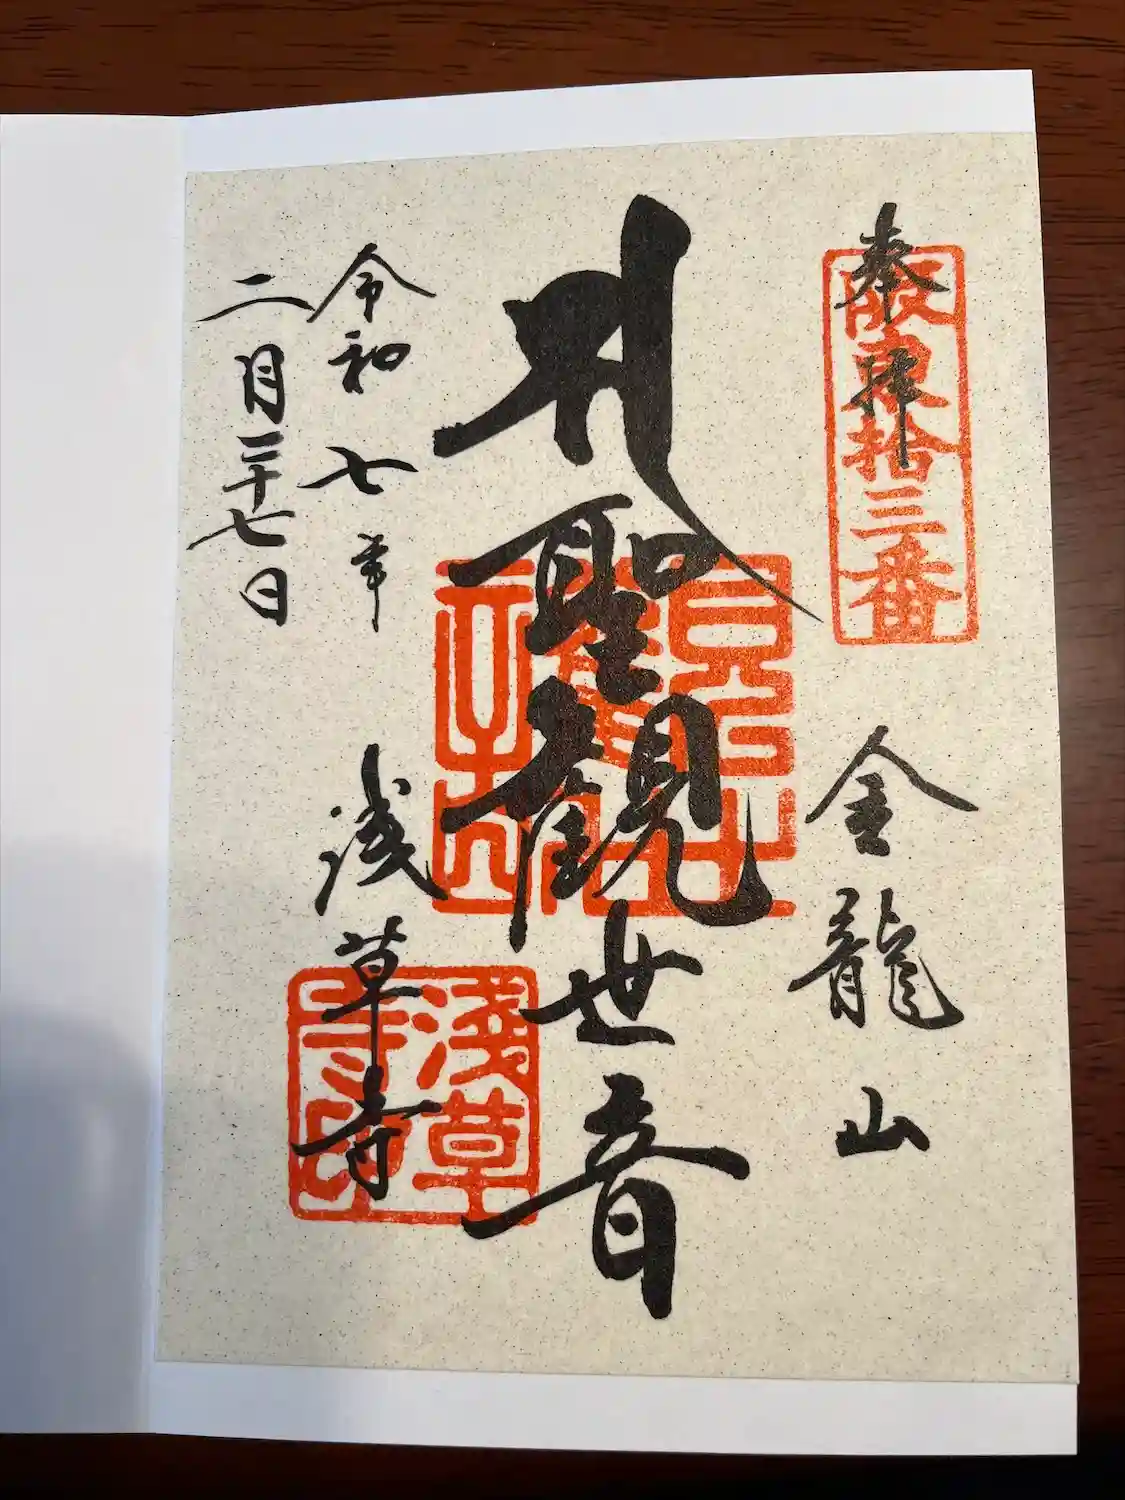 奉拝
阪東拾三番
金龍山
聖観世音
浅草寺
淺草寺印
令和七年
二月二十七日